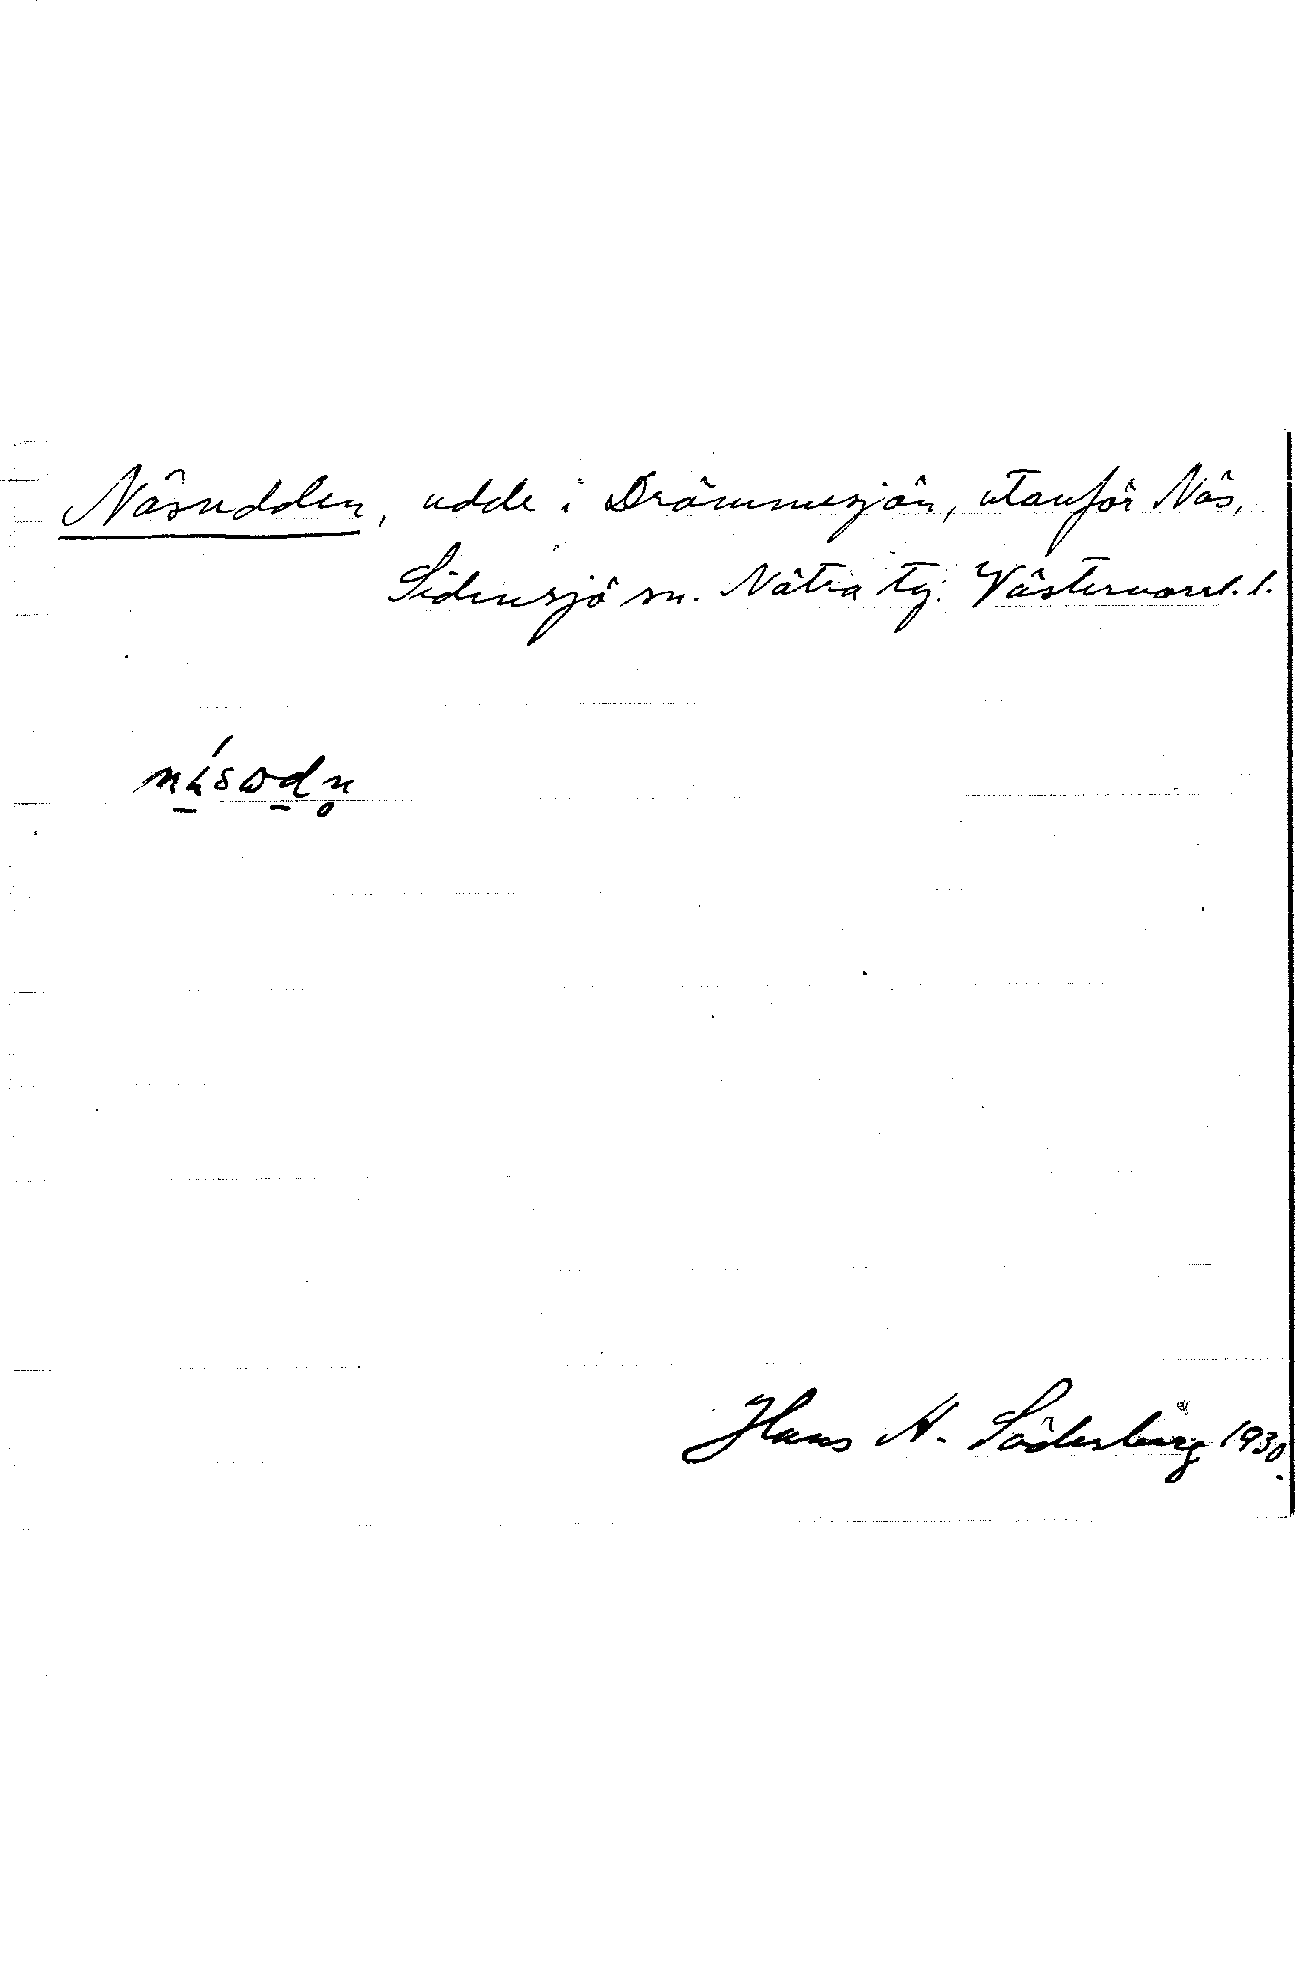 Näsudden, udde i Drömmesjön, utanför Näs,
Sidensjö sn. Nätra tg. Västernorrl. l.
Hans H. Söderberg 1930.